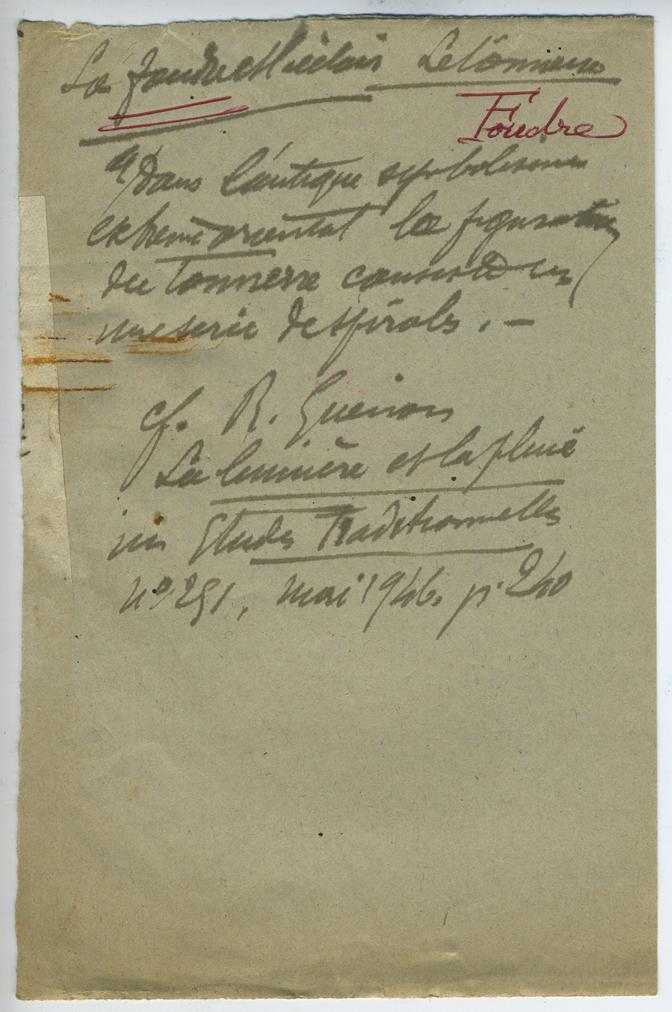 La foudre et l'éclair Le Tonnerre
Foudre
a) Dans l'antique symbolisme
extreme oriental la figuration
du tonnerre consiste en
une serie de spirals. –
cf. R. Guénon
La lumière et la pluie
in Etudes Traditionnelles
no. 251, mai 1946. p. 240